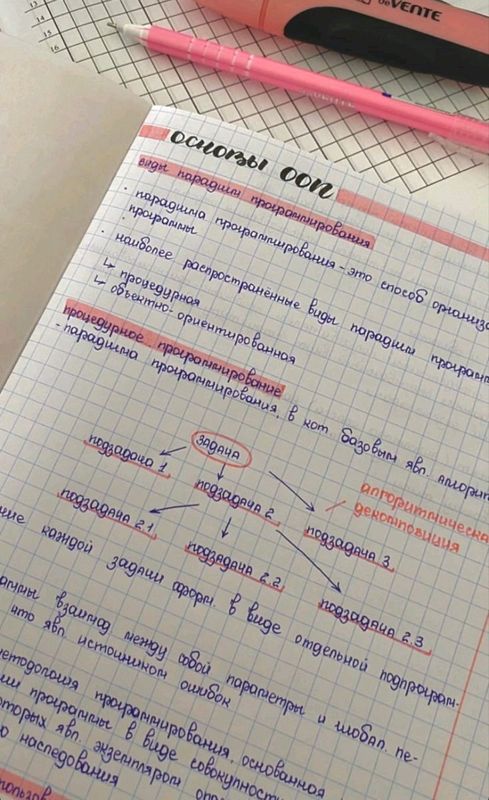 deVENTE
13
14
15
16
основы ооп
виды парадигм программирования
· парадигма программирования - это способ организа
программы
· наиболее распространённые виды парадигм програм
↳ процедурная
↳ объектно-ориентированная
процедурное программирование
- парадигма программирования, в кот. базовым явл. алгорит
ЗАДАЧА
подзадача 1
подзадача 2
подзадача 3
алгоритмическа
декомпозиция
подзадача 2.1
подзадача 2.2
подзадача 2.3
ние каждой задачи оформ. в виде отдельной подпрограм-
аммы взаимод между собой параметры и глобал. пе-
что явл. источником ошибок
методология программирования, основанная
ии программы в виде совокупност
оторых явл. экземпляром опр
ю наследования
использов